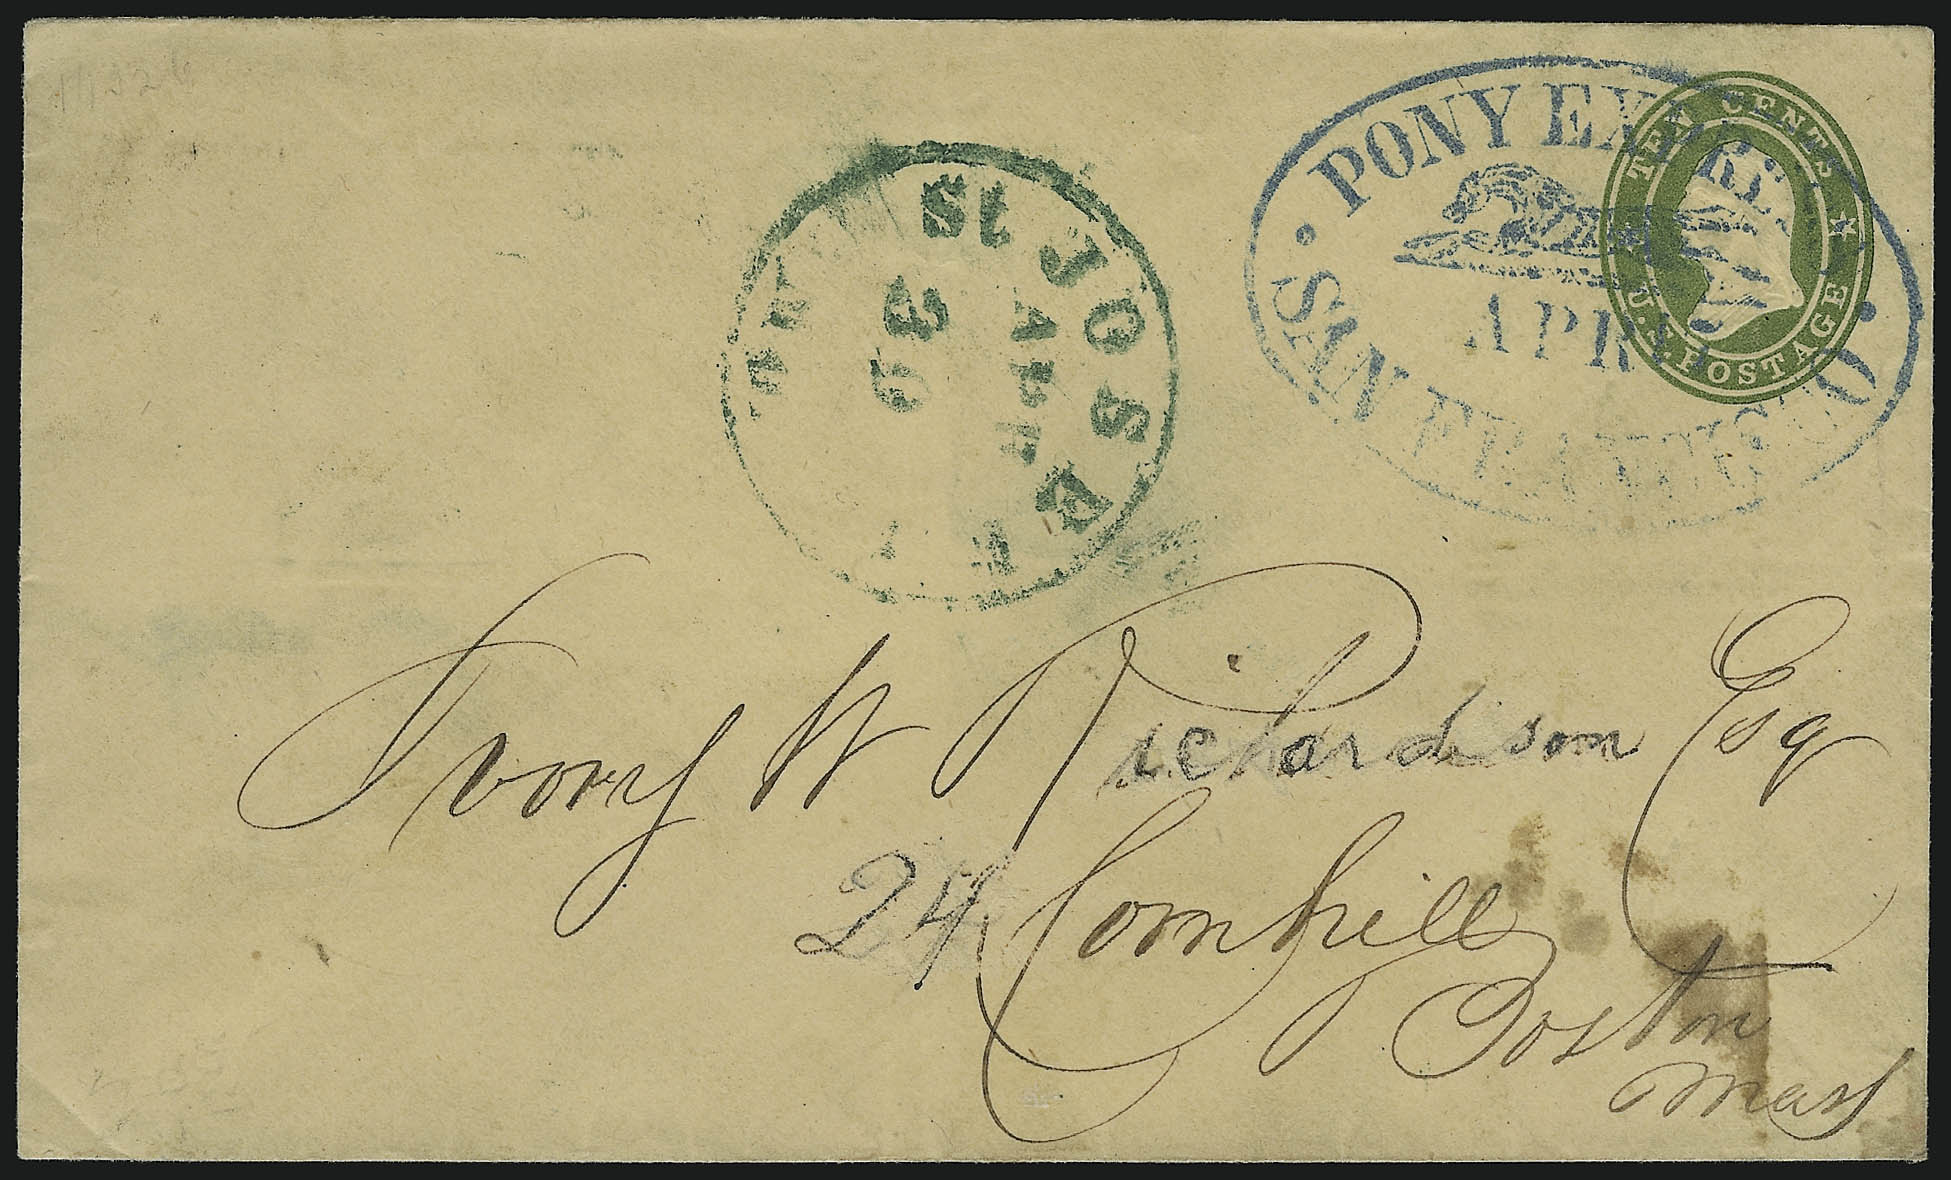 PONY EXPRESS
APRIL
SAN FRANCISCO
TEN CENTS
U.S. POSTAGE
St JOSEPH
APR
Ivory W Richardson Esq
24 Cornhill
Boston
Mass